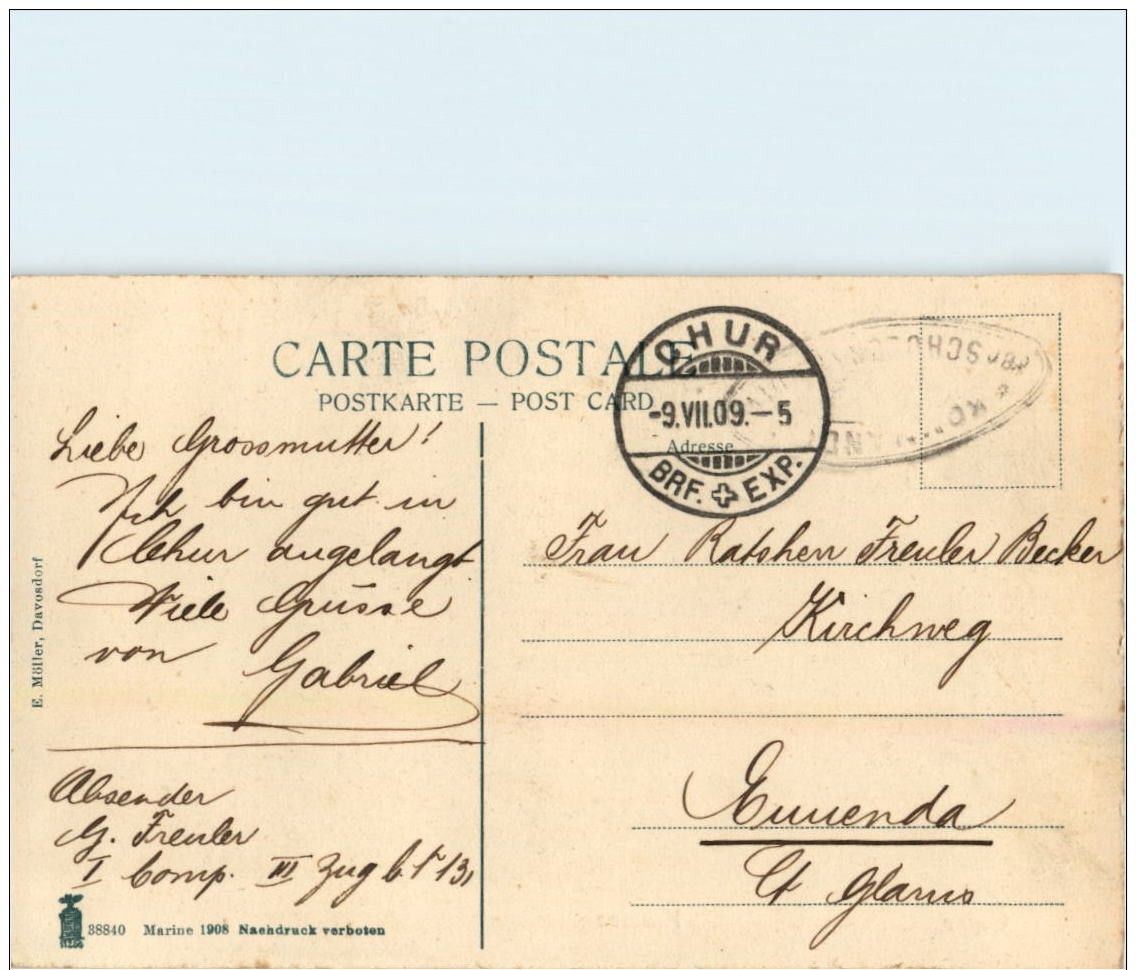 CARTE POSTALE
POSTKARTE — POST CARD
CHUR
-9.VII.09.-5
BRF. EXP.
Adresse
Liebe Grossmutter!
Ich bin gut in
Chur angelangt
Viele Grüsse
von
Gabriel
Absender
G. Freuler
I Comp. III Zug
Frau Ratsherr Freuler Becker
Kirchweg
Ennenda
Ct Glarus
E. Möller, Davosdorf
38840 Marine 1908 Nachdruck verboten